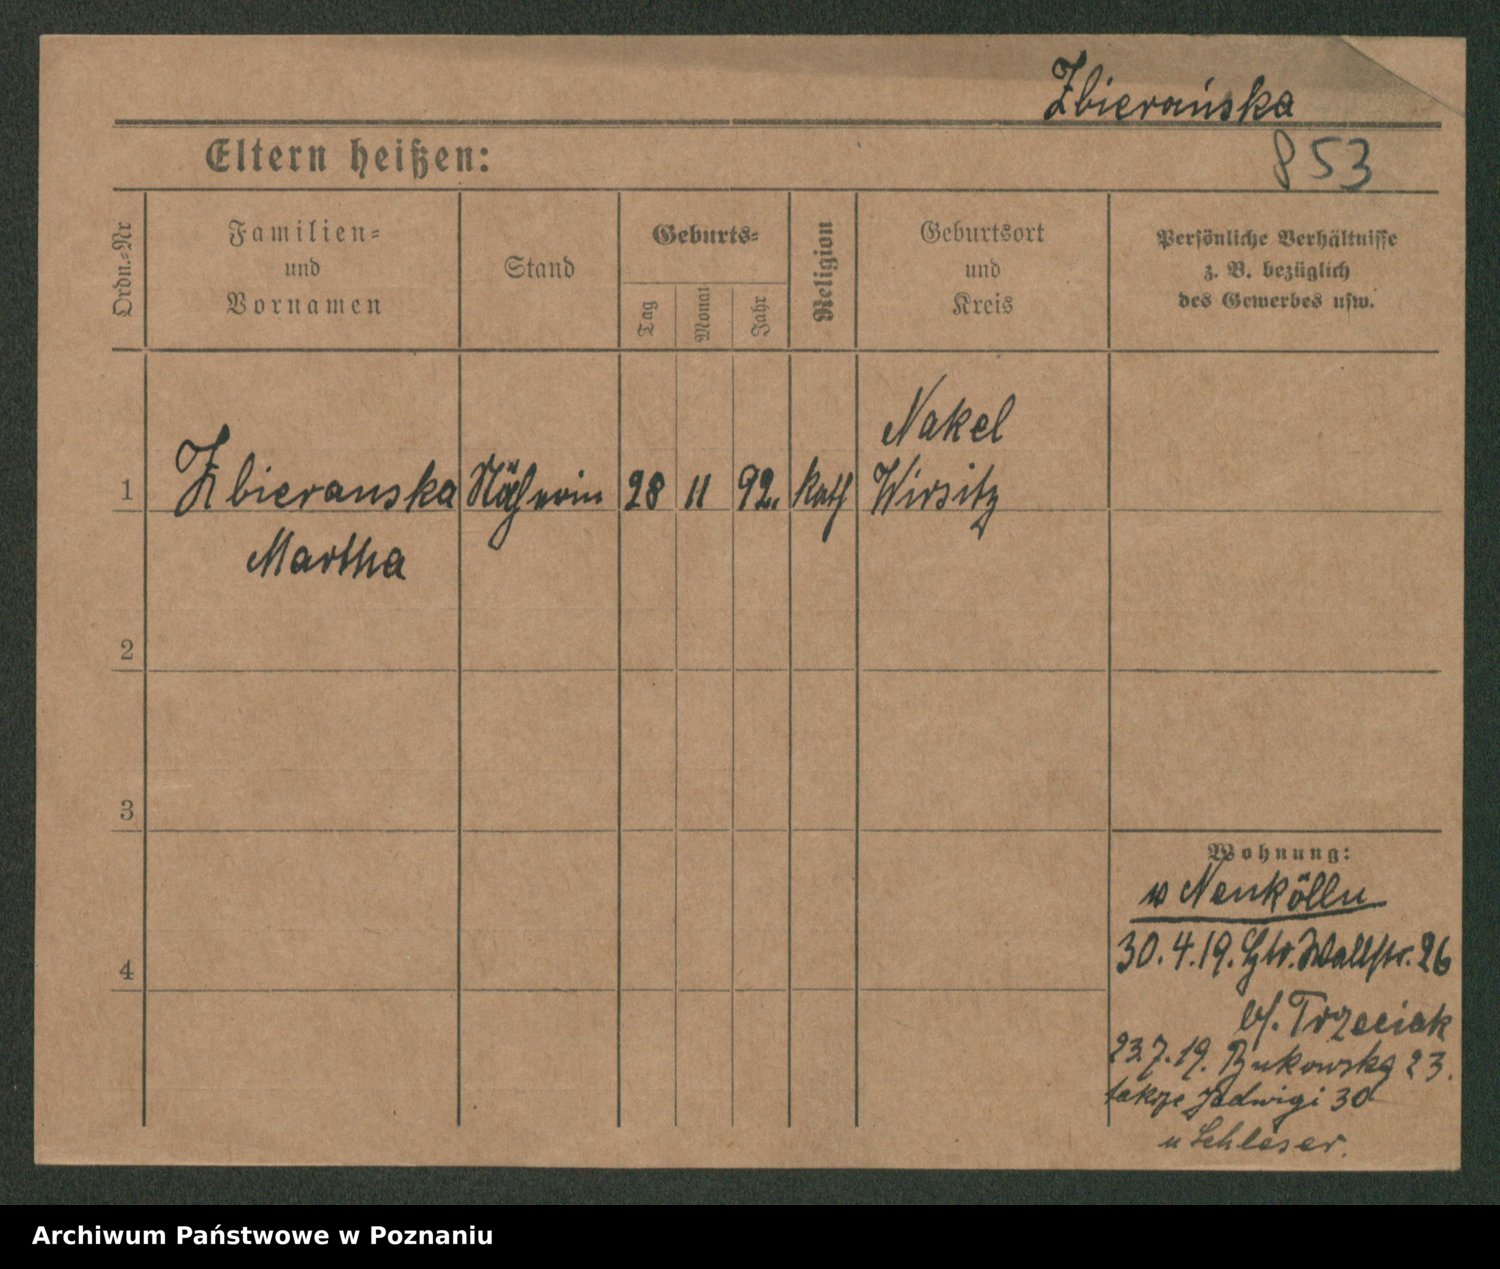 Zbierańska
Eltern heißen:
853
Ordn.-Nr
Familien-
und
Vornamen
Stand
Geburts-
Tag
Monat
Jahr
Religion
Geburtsort
und
Kreis
Persönliche Verhältnisse
z. B. bezüglich
des Gewerbes usw.
Nakel
1 Zbieranska Näherin 28 11 92. kath Wirsitz
Martha
2
3
4
Wohnung:
v Neukölln
30.4.19. Gr. Wallstr. 26
b/. Trzeciak
23.7.19. Bukowska 23.
także Jadwigi 30
u Schleser.
Archiwum Państwowe w Poznaniu